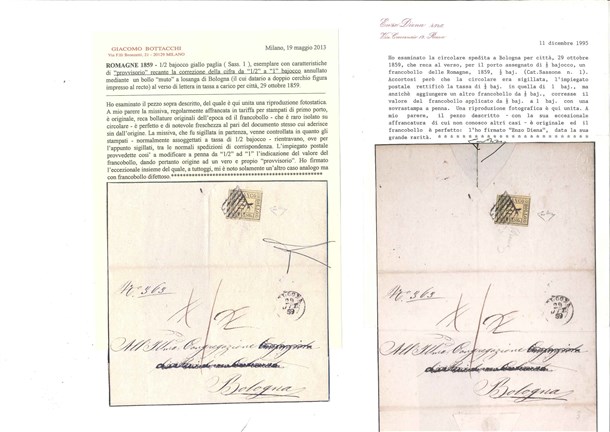 GIACOMO BOTTACCHI
Milano, 19 maggio 2013
ROMAGNE 1859 - 1/2 bajocco giallo paglia ( Sass. 1 ), esemplare con caratteristiche
di "provvisorio" recante la correzione della cifra da "1/2" a "1" bajocco annullato
mediante un bollo "muto" a losanga di Bologna (il cui datario a doppio cerchio figura
impresso al recto) al verso di lettera in tassa a carico per città, 29 ottobre 1859.
Ho esaminato il pezzo sopra descritto, del quale è qui unita una riproduzione fotostatica.
A mio parere la missiva, regolarmente affrancata in tariffa per stampati di primo porto,
è originale, reca bollature originali dell'epoca ed il francobollo - che è raro isolato su
circolare - è perfetto e di notevole freschezza al pari del documento stesso cui aderisce
sin dall'origine. La missiva, che fu sigillata in partenza, venne controllata in quanto gli
stampati - normalmente assoggettati a tassa di 1/2 bajocco - rientravano, ove per
l'appunto sigillati, tra le normali spedizioni di corrispondenza. L'impiegato postale
provvedette cosi' a modificare a penna da "1/2" ad "1" l'indicazione del valore del
francobollo, dando pertanto origine ad un vero e proprio "provvisorio". Ho firmato
l'eccezionale insieme del quale, a tutt'oggi, mi è noto solamente un'altro caso analogo ma
con francobollo difettoso.
No 363
BOLOGNA
29
59
All' Illma Congregazione
Bologna
Enzo Diena
11 dicembre 1995
Ho esaminato la circolare spedita a Bologna per città, 29 ottobre
1859, che reca al verso, per il porto assegnato di ½ bajocco, un
francobollo delle Romagne, 1859, ½ baj. (Cat.Sassone n. 1).
Accortosi però che la circolare era sigillata, l'impiegato
postale rettificò la tassa di ½ baj. in quella di 1 baj., ma
anziché aggiungere un altro francobollo da ½ baj., corresse il
valore del francobollo applicato da ½ baj. a 1 baj. con una
sovrastampa a penna. Una riproduzione fotografica è qui unita. A
mio parere, il pezzo descritto - con la sua eccezionale
affrancatura di cui non conosco altri casi - è originale ed il
francobollo è perfetto: l'ho firmato "Enzo Diena", data la sua
grande rarità.
No 363
BOLOGNA
29
59
All' Illma Congregazione
Bologna